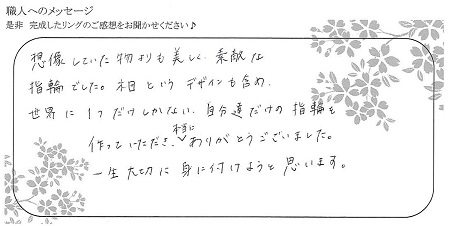 職人へのメッセージ
是非 完成したリングのご感想をお聞かせください♪
想像していた物よりも美しく、素敵な
指輪でした。木目という デザインも含め、
世界に1つだけしかない、自分達だけの指輪を
作っていただき、本当にありがとうございました。
一生大切に身に付けようと思います。